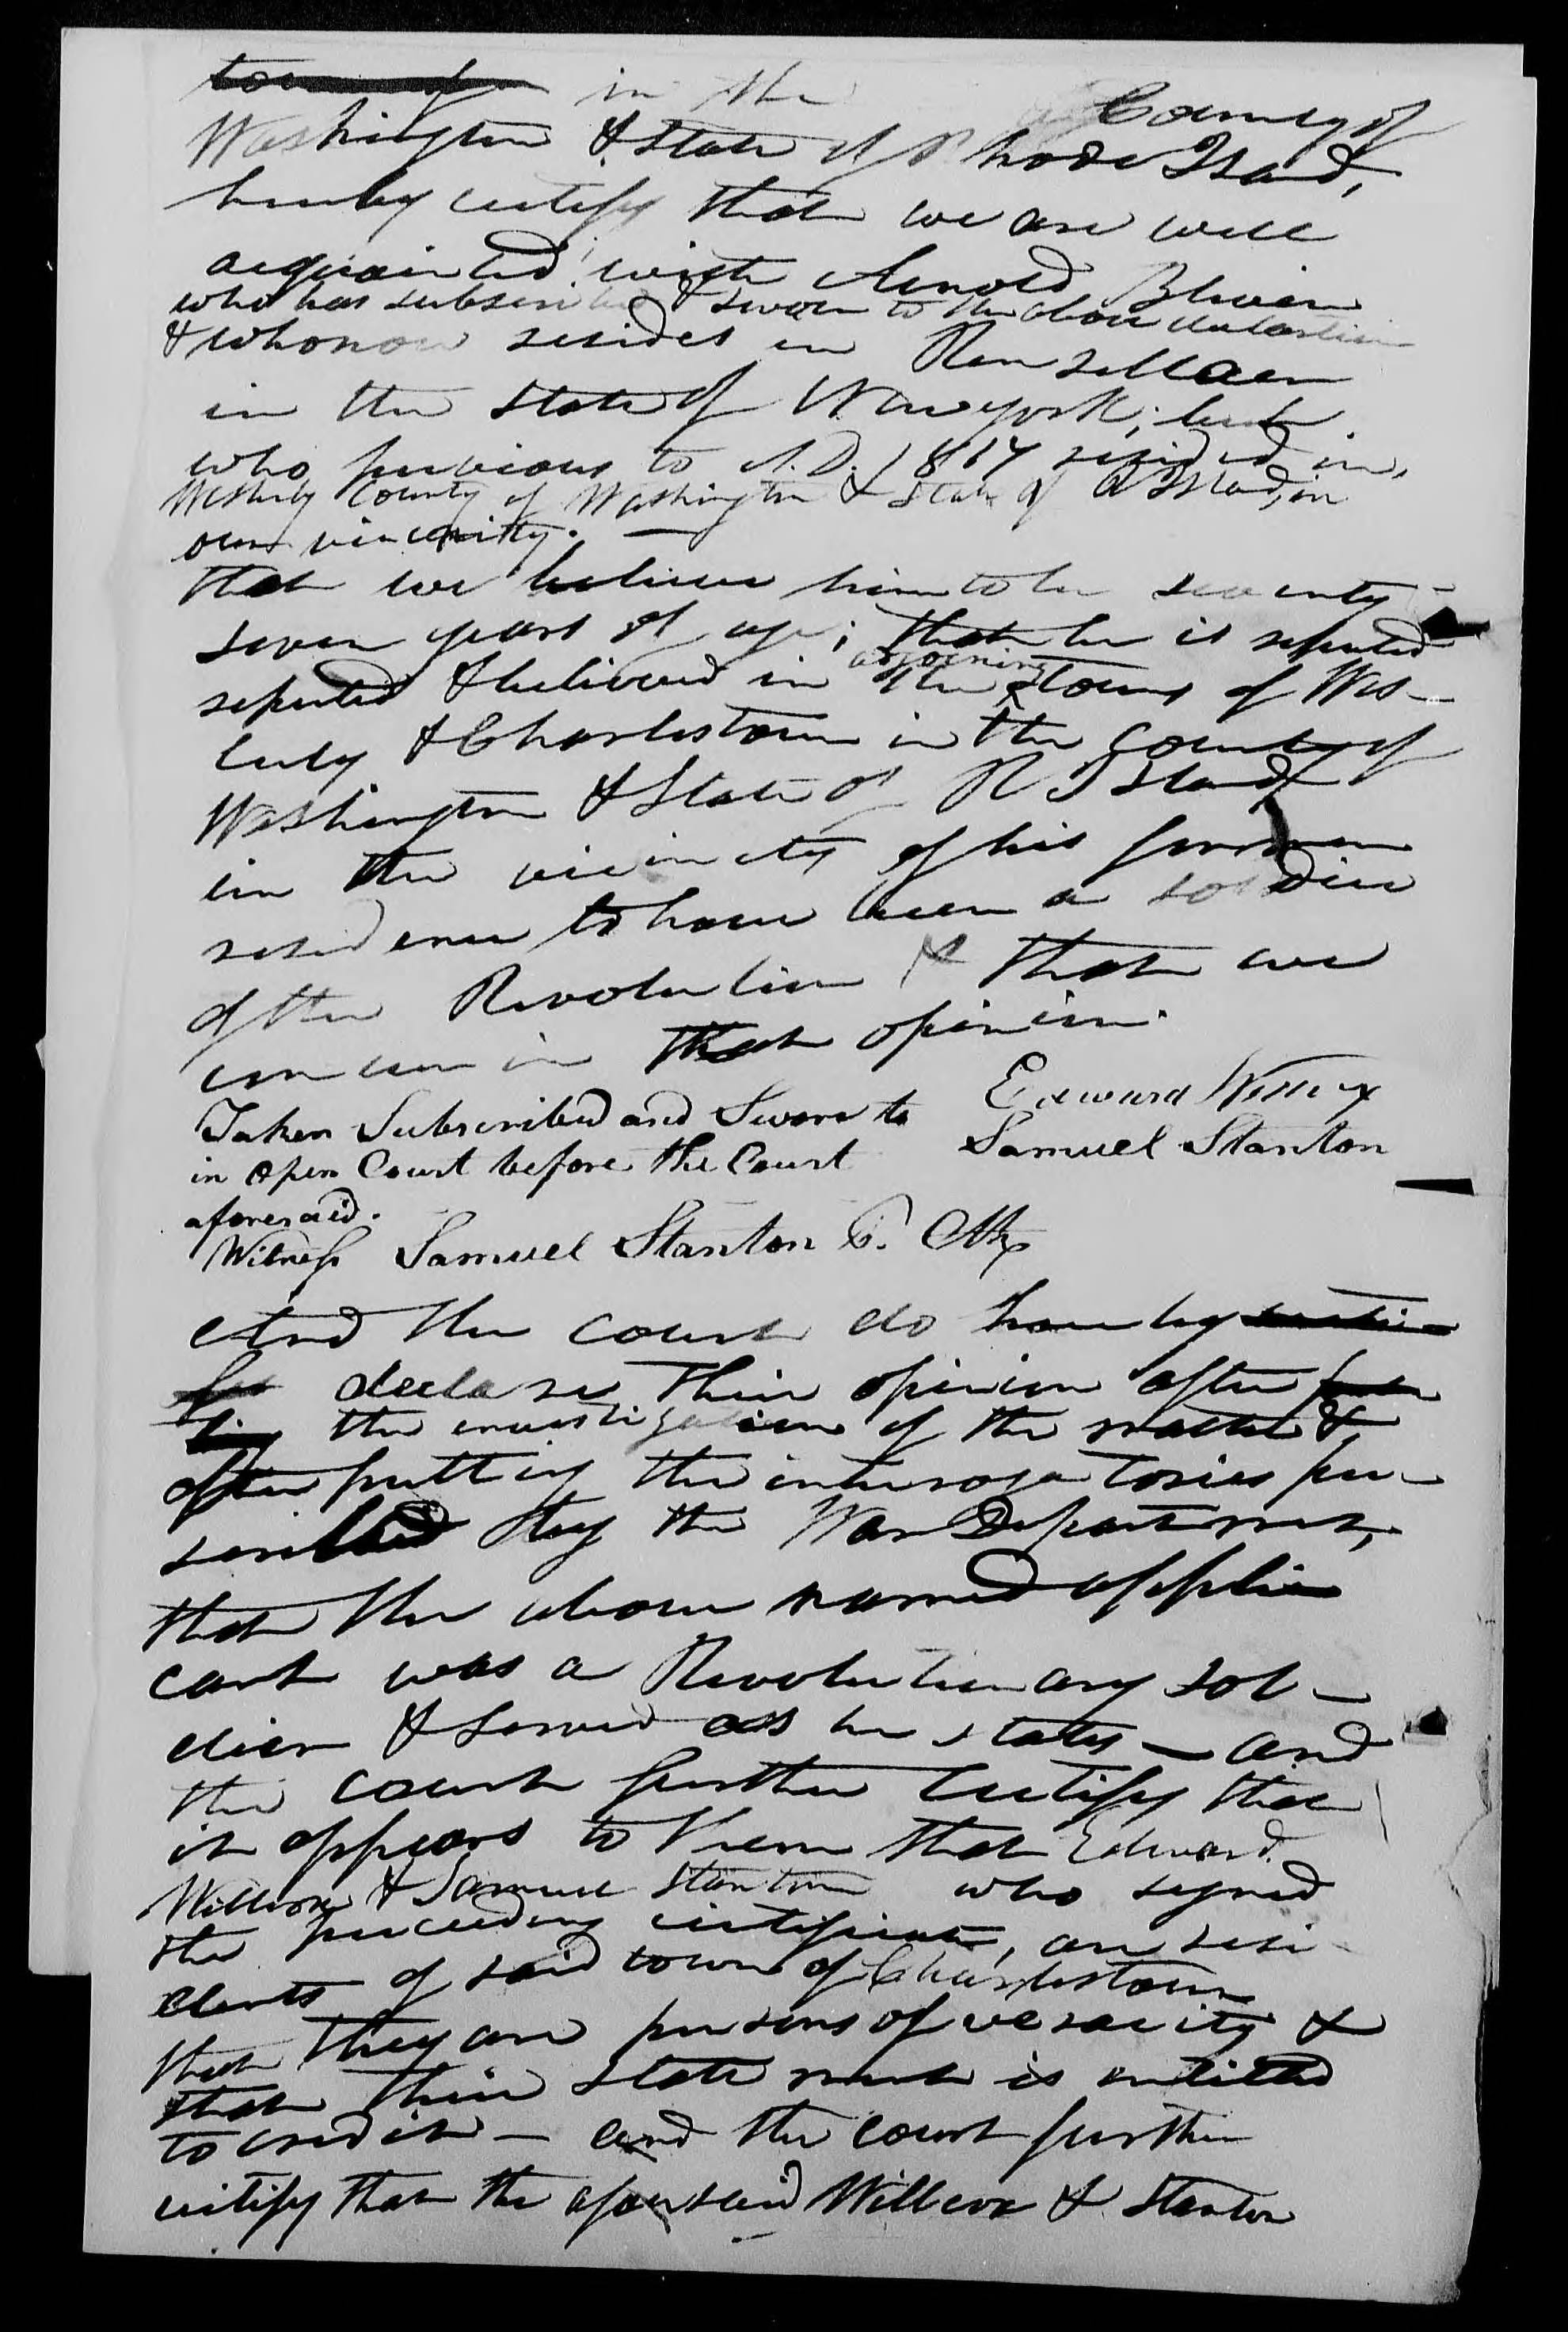 in the County of
Washington & State of Rhode Island,
hereby certify that we are well
acquainted with Arnold Bliven
who has subscribed & sworn to the above declaration
& who now resides in Rensellaer
in the State of New york; but
who previous to A.D. 1817 resided in,
Westerly County of Washington & State of R Island, in
our vincinity. —
that we believe him to be seventy -
seven years of age; that he is reputed
reputed & believed in the adjoining towns of Wes-
terly & Charlestown in the County of
Washington & State of R Island,
in the vicinity of his former
residence to have been a soldier
of the Revolution & that we
concur in that opinion.
Edward Willcox
Taken Subscribed and Sworn to
Samuel Stanton
in open Court before the Court
aforesaid.
Witness Samuel Stanton C. Clk
And the court do hereby
declare their opinion after
the investigation of the matter &
after putting the interrogatories pre-
scribed by the War Department,
that the above named appli
cant was a Revolutionary sol-
dier & served as he states — and
the court further certify that
it appears to them that Edward
Willcox & Samuel Stanton who signed
the preceeding certificate, are resi-
dents of said town of Charlestown
that they are persons of veracity &
that their statement is entitled
to credit — and the court further
certify that the aforesaid Willcox & Stanton